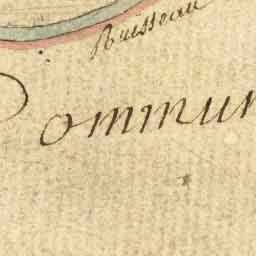 Ruisseau
Commun